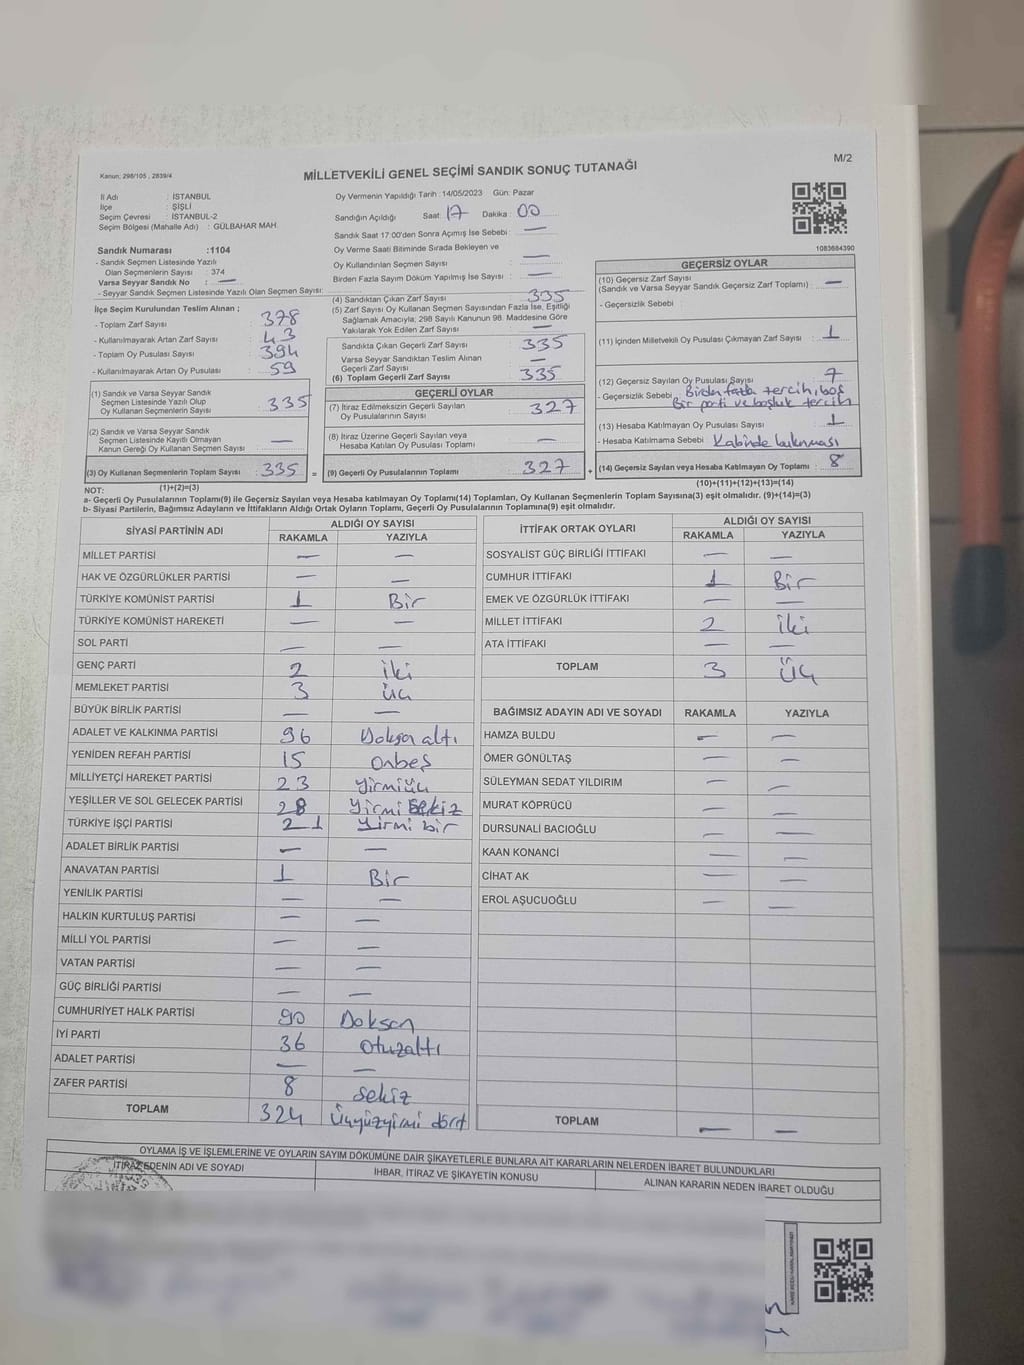 Kanun; 298/105 , 2839/4
MİLLETVEKİLİ GENEL SEÇİMİ SANDIK SONUÇ TUTANAĞI
M/2
İl Adı : İSTANBUL
İlçe : ŞİŞLİ
Seçim Çevresi : İSTANBUL-2
Seçim Bölgesi (Mahalle Adı) : GÜLBAHAR MAH.
Sandık Numarası :1104
- Sandık Seçmen Listesinde Yazılı
Olan Seçmenlerin Sayısı : 374
Varsa Seyyar Sandık No : —
- Seyyar Sandık Seçmen Listesinde Yazılı Olan Seçmen Sayısı:
İlçe Seçim Kurulundan Teslim Alınan ;
- Toplam Zarf Sayısı : 378
- Kullanılmayarak Artan Zarf Sayısı : 43
- Toplam Oy Pusulası Sayısı : 394
- Kullanılmayarak Artan Oy Pusulası : 59
(1) Sandık ve Varsa Seyyar Sandık
Seçmen Listesinde Yazılı Olup
Oy Kullanan Seçmenlerin Sayısı : 335
(2) Sandık ve Varsa Seyyar Sandık
Seçmen Listesinde Kayıtlı Olmayan
Kanun Gereği Oy Kullanan Seçmen Sayısı : —
(3) Oy Kullanan Seçmenlerin Toplam Sayısı : 335
(1)+(2)=(3)
Oy Vermenin Yapıldığı Tarih : 14/05/2023 Gün: Pazar
Sandığın Açıldığı Saat: 17 Dakika : 00
Sandık Saat 17:00'den Sonra Açımış İse Sebebi : —
Oy Verme Saati Bitiminde Sırada Bekleyen ve
Oy Kullandırılan Seçmen Sayısı : —
Birden Fazla Sayım Döküm Yapılmış İse Sayısı : —
(4) Sandıktan Çıkan Zarf Sayısı : 335
(5) Zarf Sayısı Oy Kullanan Seçmen Sayısından Fazla İse, Eşitliği
Sağlamak Amacıyla; 298 Sayılı Kanunun 98. Maddesine Göre
Yakılarak Yok Edilen Zarf Sayısı : —
Sandıkta Çıkan Geçerli Zarf Sayısı : 335
Varsa Seyyar Sandıktan Teslim Alınan
Geçerli Zarf Sayısı : —
(6) Toplam Geçerli Zarf Sayısı : 335
GEÇERLİ OYLAR
(7) İtiraz Edilmeksizin Geçerli Sayılan
Oy Pusulalarının Sayısı : 327
(8) İtiraz Üzerine Geçerli Sayılan veya
Hesaba Katılan Oy Pusulası Toplamı : —
= (9) Geçerli Oy Pusulalarının Toplamı : 327 +
1083684390
GEÇERSİZ OYLAR
(10) Geçersiz Zarf Sayısı
(Sandık ve Varsa Seyyar Sandık Geçersiz Zarf Toplamı) : —
- Geçersizlik Sebebi :
(11) İçinden Milletvekili Oy Pusulası Çıkmayan Zarf Sayısı : 1
(12) Geçersiz Sayılan Oy Pusulası Sayısı : 7
- Geçersizlik Sebebi : Birden fazla tercih, boş
Bir parti ve boşluk tercih
(13) Hesaba Katılmayan Oy Pusulası Sayısı : 1
- Hesaba Katılmama Sebebi : Kabinde bulunması
(14) Geçersiz Sayılan veya Hesaba Katılmayan Oy Toplamı : 8
(10)+(11)+(12)+(13)=(14)
NOT:
a- Geçerli Oy Pusulalarının Toplamı(9) ile Geçersiz Sayılan veya Hesaba katılmayan Oy Toplamı(14) Toplamları, Oy Kullanan Seçmenlerin Toplam Sayısına(3) eşit olmalıdır. (9)+(14)=(3)
b- Siyasi Partilerin, Bağımsız Adayların ve İttifakların Aldığı Ortak Oyların Toplamı, Geçerli Oy Pusulalarının Toplamına(9) eşit olmalıdır.
SİYASİ PARTİNİN ADI ALDIĞI OY SAYISI
RAKAMLA YAZIYLA
MİLLET PARTİSİ — —
HAK VE ÖZGÜRLÜKLER PARTİSİ — —
TÜRKİYE KOMÜNİST PARTİSİ 1 Bir
TÜRKİYE KOMÜNİST HAREKETİ — —
SOL PARTİ — —
GENÇ PARTİ 2 iki
MEMLEKET PARTİSİ 3 üç
BÜYÜK BİRLİK PARTİSİ — —
ADALET VE KALKINMA PARTİSİ 96 Doksan altı
YENİDEN REFAH PARTİSİ 15 onbeş
MİLLİYETÇİ HAREKET PARTİSİ 23 yirmiüç
YEŞİLLER VE SOL GELECEK PARTİSİ 28 Yirmi sekiz
TÜRKİYE İŞÇİ PARTİSİ 21 yirmi bir
ADALET BİRLİK PARTİSİ — —
ANAVATAN PARTİSİ 1 Bir
YENİLİK PARTİSİ — —
HALKIN KURTULUŞ PARTİSİ — —
MİLLİ YOL PARTİSİ — —
VATAN PARTİSİ — —
GÜÇ BİRLİĞİ PARTİSİ — —
CUMHURİYET HALK PARTİSİ 90 Doksan
İYİ PARTİ 36 otuzaltı
ADALET PARTİSİ — —
ZAFER PARTİSİ 8 sekiz
TOPLAM 324 Üçyüzyirmi dört
İTTİFAK ORTAK OYLARI ALDIĞI OY SAYISI
RAKAMLA YAZIYLA
SOSYALİST GÜÇ BİRLİĞİ İTTİFAKI — —
CUMHUR İTTİFAKI 1 Bir
EMEK VE ÖZGÜRLÜK İTTİFAKI — —
MİLLET İTTİFAKI 2 iki
ATA İTTİFAKI — —
TOPLAM 3 üç
BAĞIMSIZ ADAYIN ADI VE SOYADI RAKAMLA YAZIYLA
HAMZA BULDU — —
ÖMER GÖNÜLTAŞ — —
SÜLEYMAN SEDAT YILDIRIM — —
MURAT KÖPRÜCÜ — —
DURSUNALİ BACIOĞLU — —
KAAN KONANCİ — —
CİHAT AK — —
EROL AŞUCUOĞLU — —
TOPLAM — —
OYLAMA İŞ VE İŞLEMLERİNE VE OYLARIN SAYIM DÖKÜMÜNE DAİR ŞİKAYETLERLE BUNLARA AİT KARARLARIN NELERDEN İBARET BULUNDUKLARI
İTİRAZ EDENİN ADI VE SOYADI İHBAR, İTİRAZ VE ŞİKAYETİN KONUSU ALINAN KARARIN NEDEN İBARET OLDUĞU